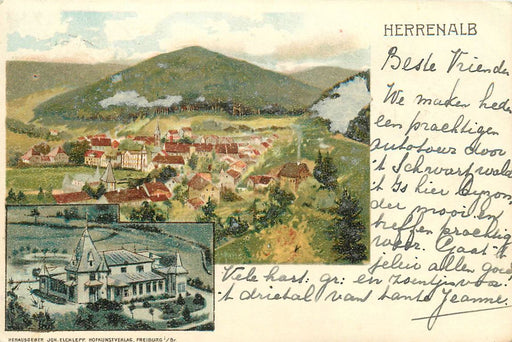 HERRENALB
Beste Vrienden
We maken heden
een prachtigen
autotour door
't Schwarzwald
't Is hier byzon-
der mooi en
treffen prachtig
weer. Gaat 't
jelui allen goed
Vele hart. gr: en zoentjes voor
't drietal van tante Jeanne.
HERAUSGEBER JOH. ELCHLEPP, HOFKUNSTVERLAG, FREIBURG i/Br.